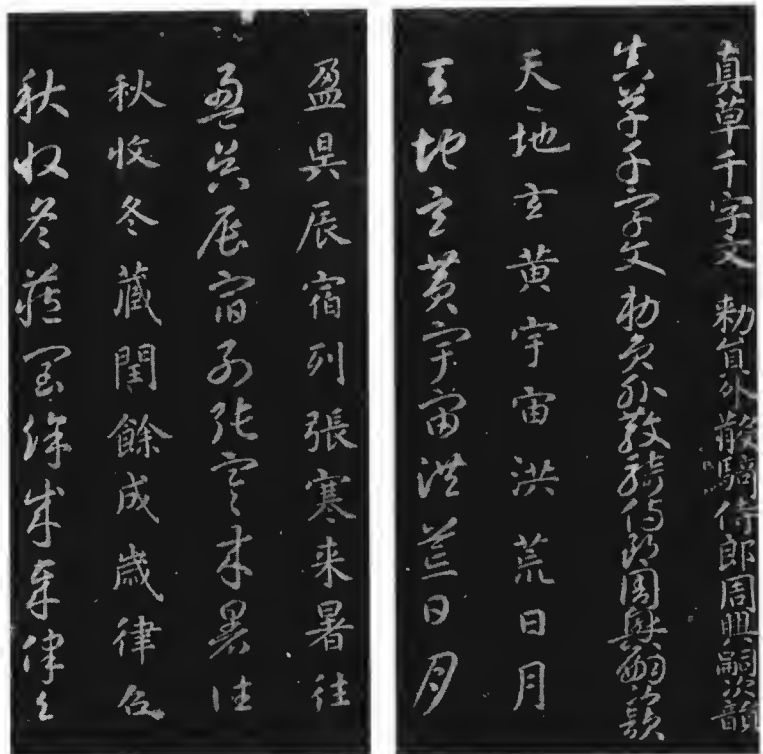 真草千字文 勑員外散騎侍郎周興嗣次韻
真草千字文勑員外散騎侍郎周興嗣次韻
天地玄黄宇宙洪荒日月
天地玄黄宇宙洪荒日月
盈昃辰宿列張寒来暑往
盈昃辰宿列張寒来暑往
秋收冬藏閏餘成歲律召
秋收冬藏閏餘成歲律召